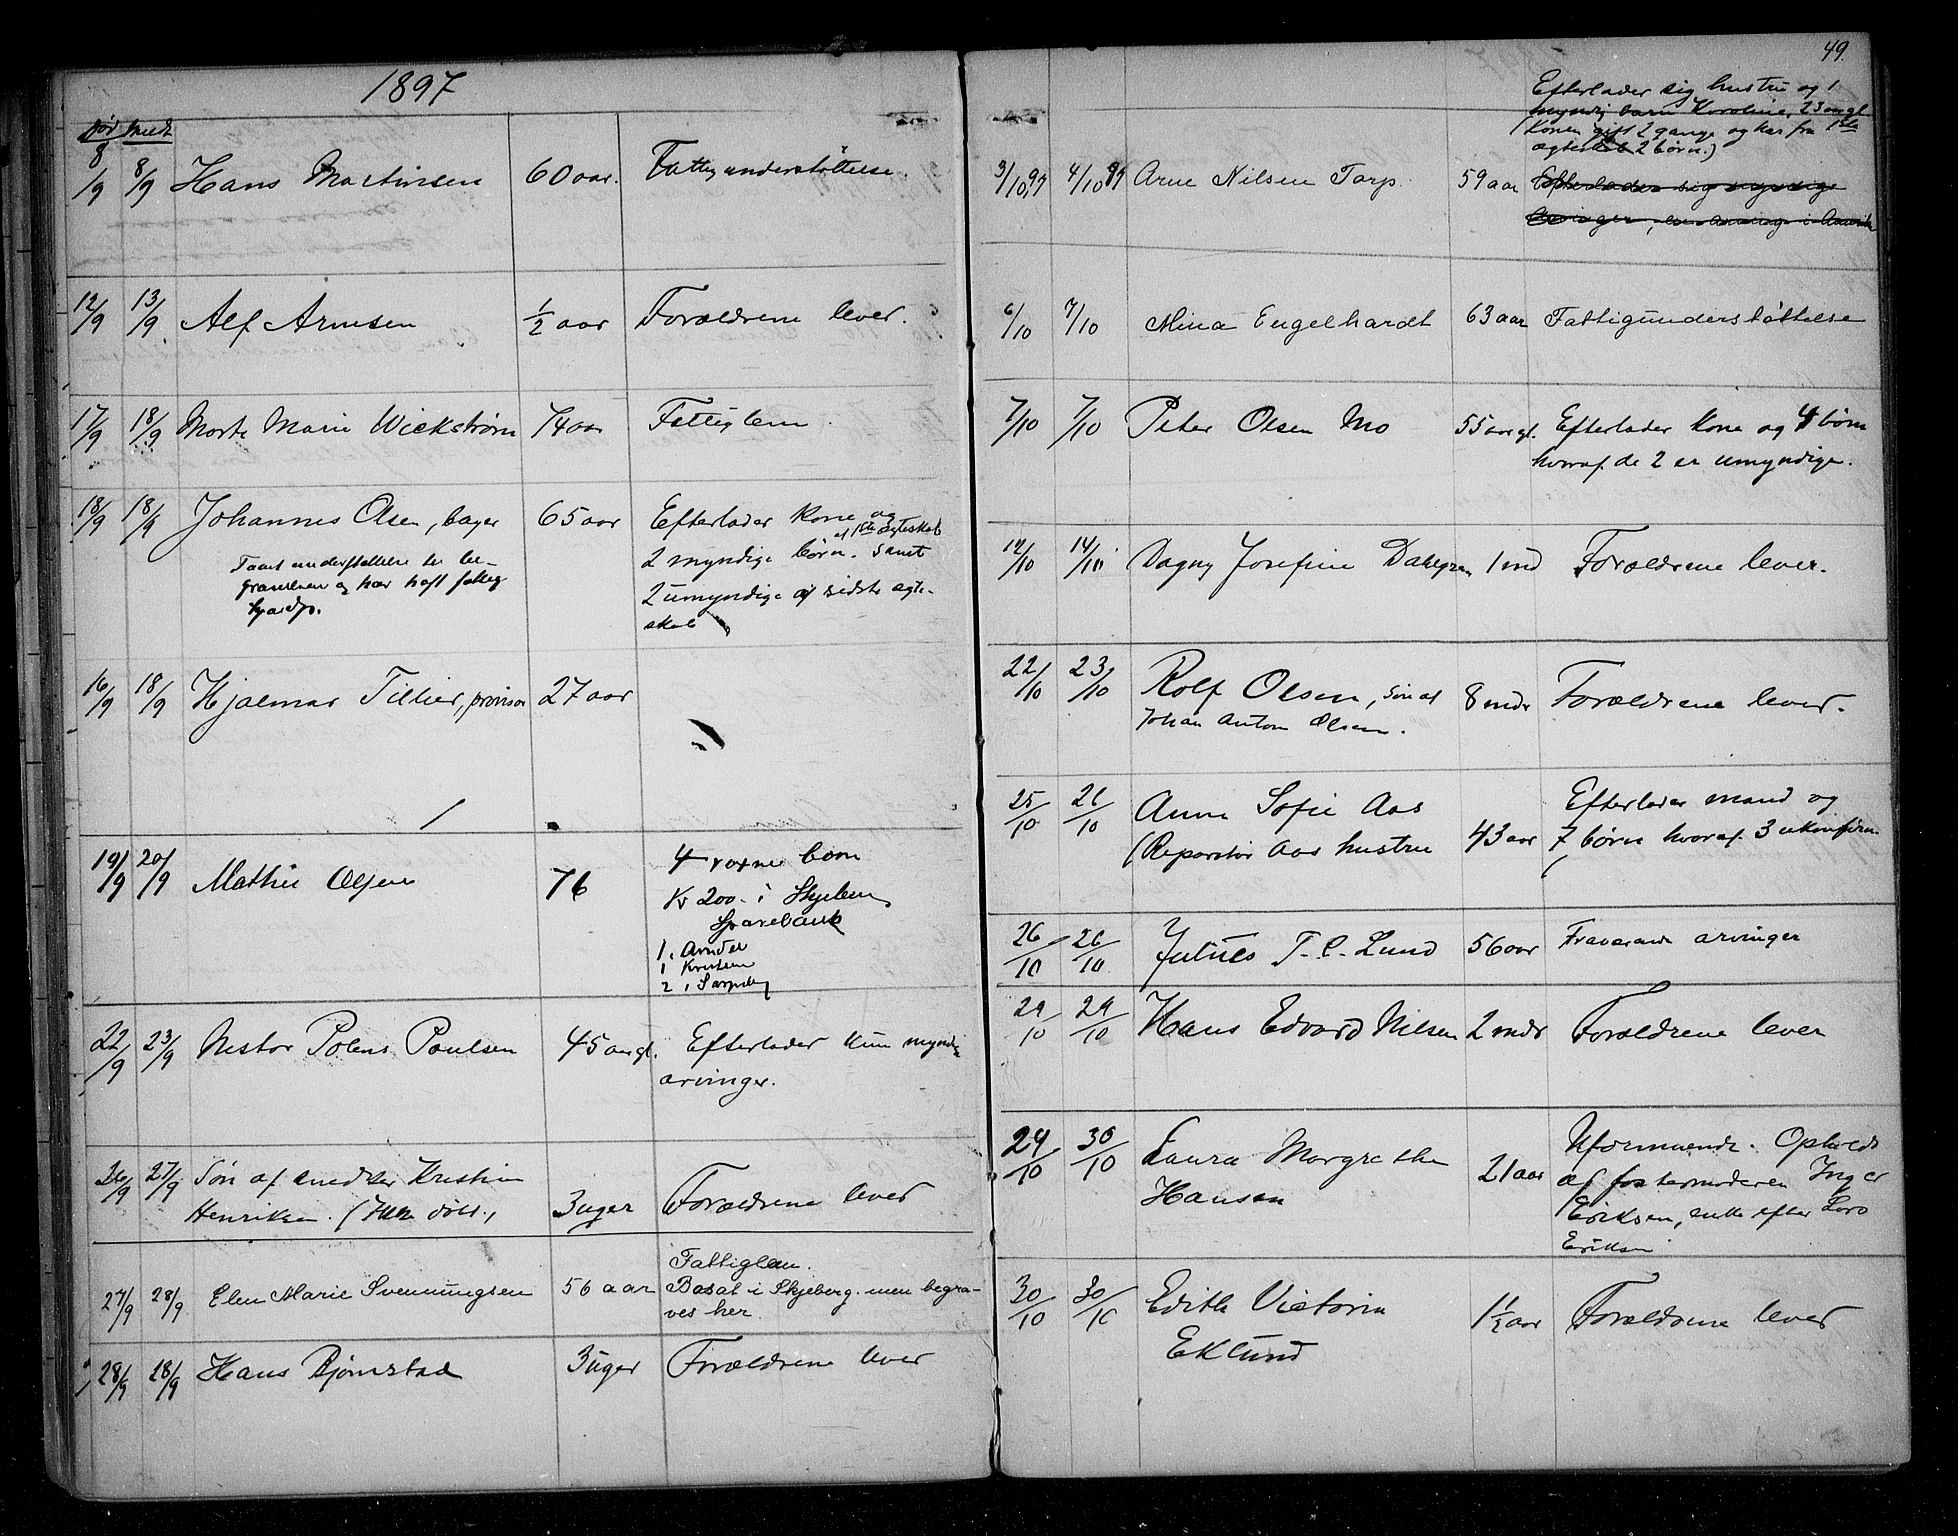 1897
død meldt
8/9 8/9 Hans Martinsen 60 aar. Fattigunderstøttelse.
12/9 13/9 Alf Arnesen 1/2 aar Forældrene lever.
17/9 18/9 Marte Marie Wickstrøm 74 aar Fattiglem.
18/9 18/9 Johannes Olsen, bager 65 aar Efterlader kone og
af 1ste ægteskab
2 myndige børn. samt
2 umyndige af sidste ægte-
skab
Faaet understøttelse til be-
gravelsen og har haft fattig
hjælp.
16/9 18/9 Hjalmar Tillier, provisor 27 aar
19/9 20/9 Mathie Olsen 76 4 voxne børn
Kr 200.- i Skjeberg
Sparebank
1 i Arendal
1
2 i Sarpsborg
22/9 23/9 Nestor Polens Poulsen 45 aar gl. Efterlader kun myndige
arvinger.
26/9 27/9 Søn af snedker Kristian
Henriksen. 3 uger Forældrene lever
27/9 28/9 Elen Marie Svenningsen 56 aar Fattiglem.
Bosat i Skjeberg. men begra-
ves her.
28/9 28/9 Hans Bjørnstad 3 uger Forældrene lever
49.
Efterlader sig hustru og 1
myndig barn Karoline, 23 aar gl
(Konen gift 2 gange og har fra 1ste
ægteskab 2 børn.)
3/10 97 4/10 97 Arne Nilsen Tarp. 59 aar Efterlader sig myndige
arvinger, i Amerika
6/10 7/10 Mina Engelhardt 63 aar Fattigunderstøttelse
7/10 7/10 Peter Olsen Mo 55 aar gl. Efterlader kone og 4 børn
hvoraf de 2 er umyndige.
12/10 14/10 Dagny Josefine Dahlgren 1 md Forældrene lever.
22/10 23/10 Rolf Olsen, søn af 8 mdr Forældrene lever.
Johan Anton Olsen.
25/10 26/10 Anna Sofie Aas Efterlader mand og
(Reparatør Aas hustru 43 aar 7 børn hvoraf 3 ukonfirm.
26/10 26/10 Julius T. C. Lund 56 aar Fraværende arvinger
29/10 29/10 Hans Edvard Nilsen 2 mdr Forældrene lever
29/10 30/10 Laura Margrethe 21 aar Uformuende. Opholdt
Hansen af fostermoderen Inger
Eriksen, enke efter Lars
Eriksen
30/10 30/10 Edith Victoria 1 1/2 aar Forældrene lever
Eklund